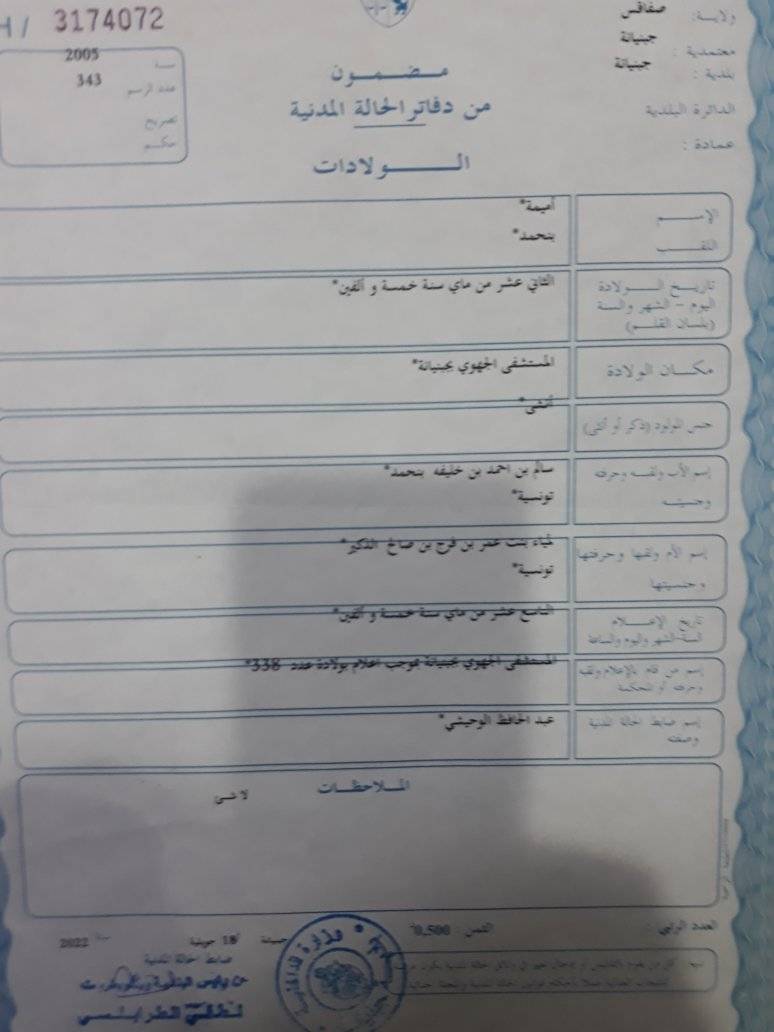 ولاية: صفاقس
معتمدية : جبنيانة
بلدية : جبنيانة
الدائرة البلدية
عمادة :
H / 3174072
سنة 2005
عدد الرسم 343
تصريح
حكم
مضمون
من دفاتر الحالة المدنية
الولادات
الإسم أميمة*
اللقب بنحمد*
تاريخ الولادة
اليوم - الشهر والسنة
(بلسان القلم)
الثاني عشر من ماي سنة خمسة و ألفين*
مكان الولادة المستشفى الجهوي بجبنيانة*
جنس المولود (ذكر أو أنثى) أنثى*
إسم الأب ولقبه وحرفته
وجنسيته
سالم بن احمد بن خليفه بنحمد*
تونسية*
إسم الأم ولقبها وحرفتها
وجنسيتها
لمياء بنت عمر بن فرج بن صالح الذكير*
تونسية*
تاريخ الإعلام
السنة-الشهر واليوم والساعة
التاسع عشر من ماي سنة خمسة و ألفين*
إسم من قام بالإعلام ولقبه
وحرفته أو المحكمة
المستشفى الجهوي بجبنيانة بموجب اعلام بولادة عدد 338*
إسم ضابط الحالة المدنية
وصفته
عبد الحافظ الوحيشي*
الملاحظات
لا شئ
العدد الرتبي :
الثمن : 0,500
جبنيانة 18 جويلية سنة 2022
ضابط الحالة المدنية